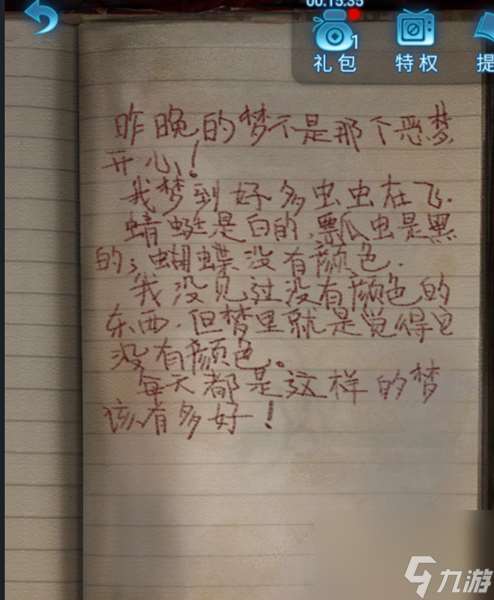 00:15:35
1
礼包
特权
提
昨晚的梦不是那个恶梦
开心！
我梦到好多虫虫在飞.
蜻蜓是白的，瓢虫是黑
的；蝴蝶没有颜色.
我没见过没有颜色的
东西.但梦里就是觉得它
没有颜色。
每天都是这样的梦
该有多好！
九游